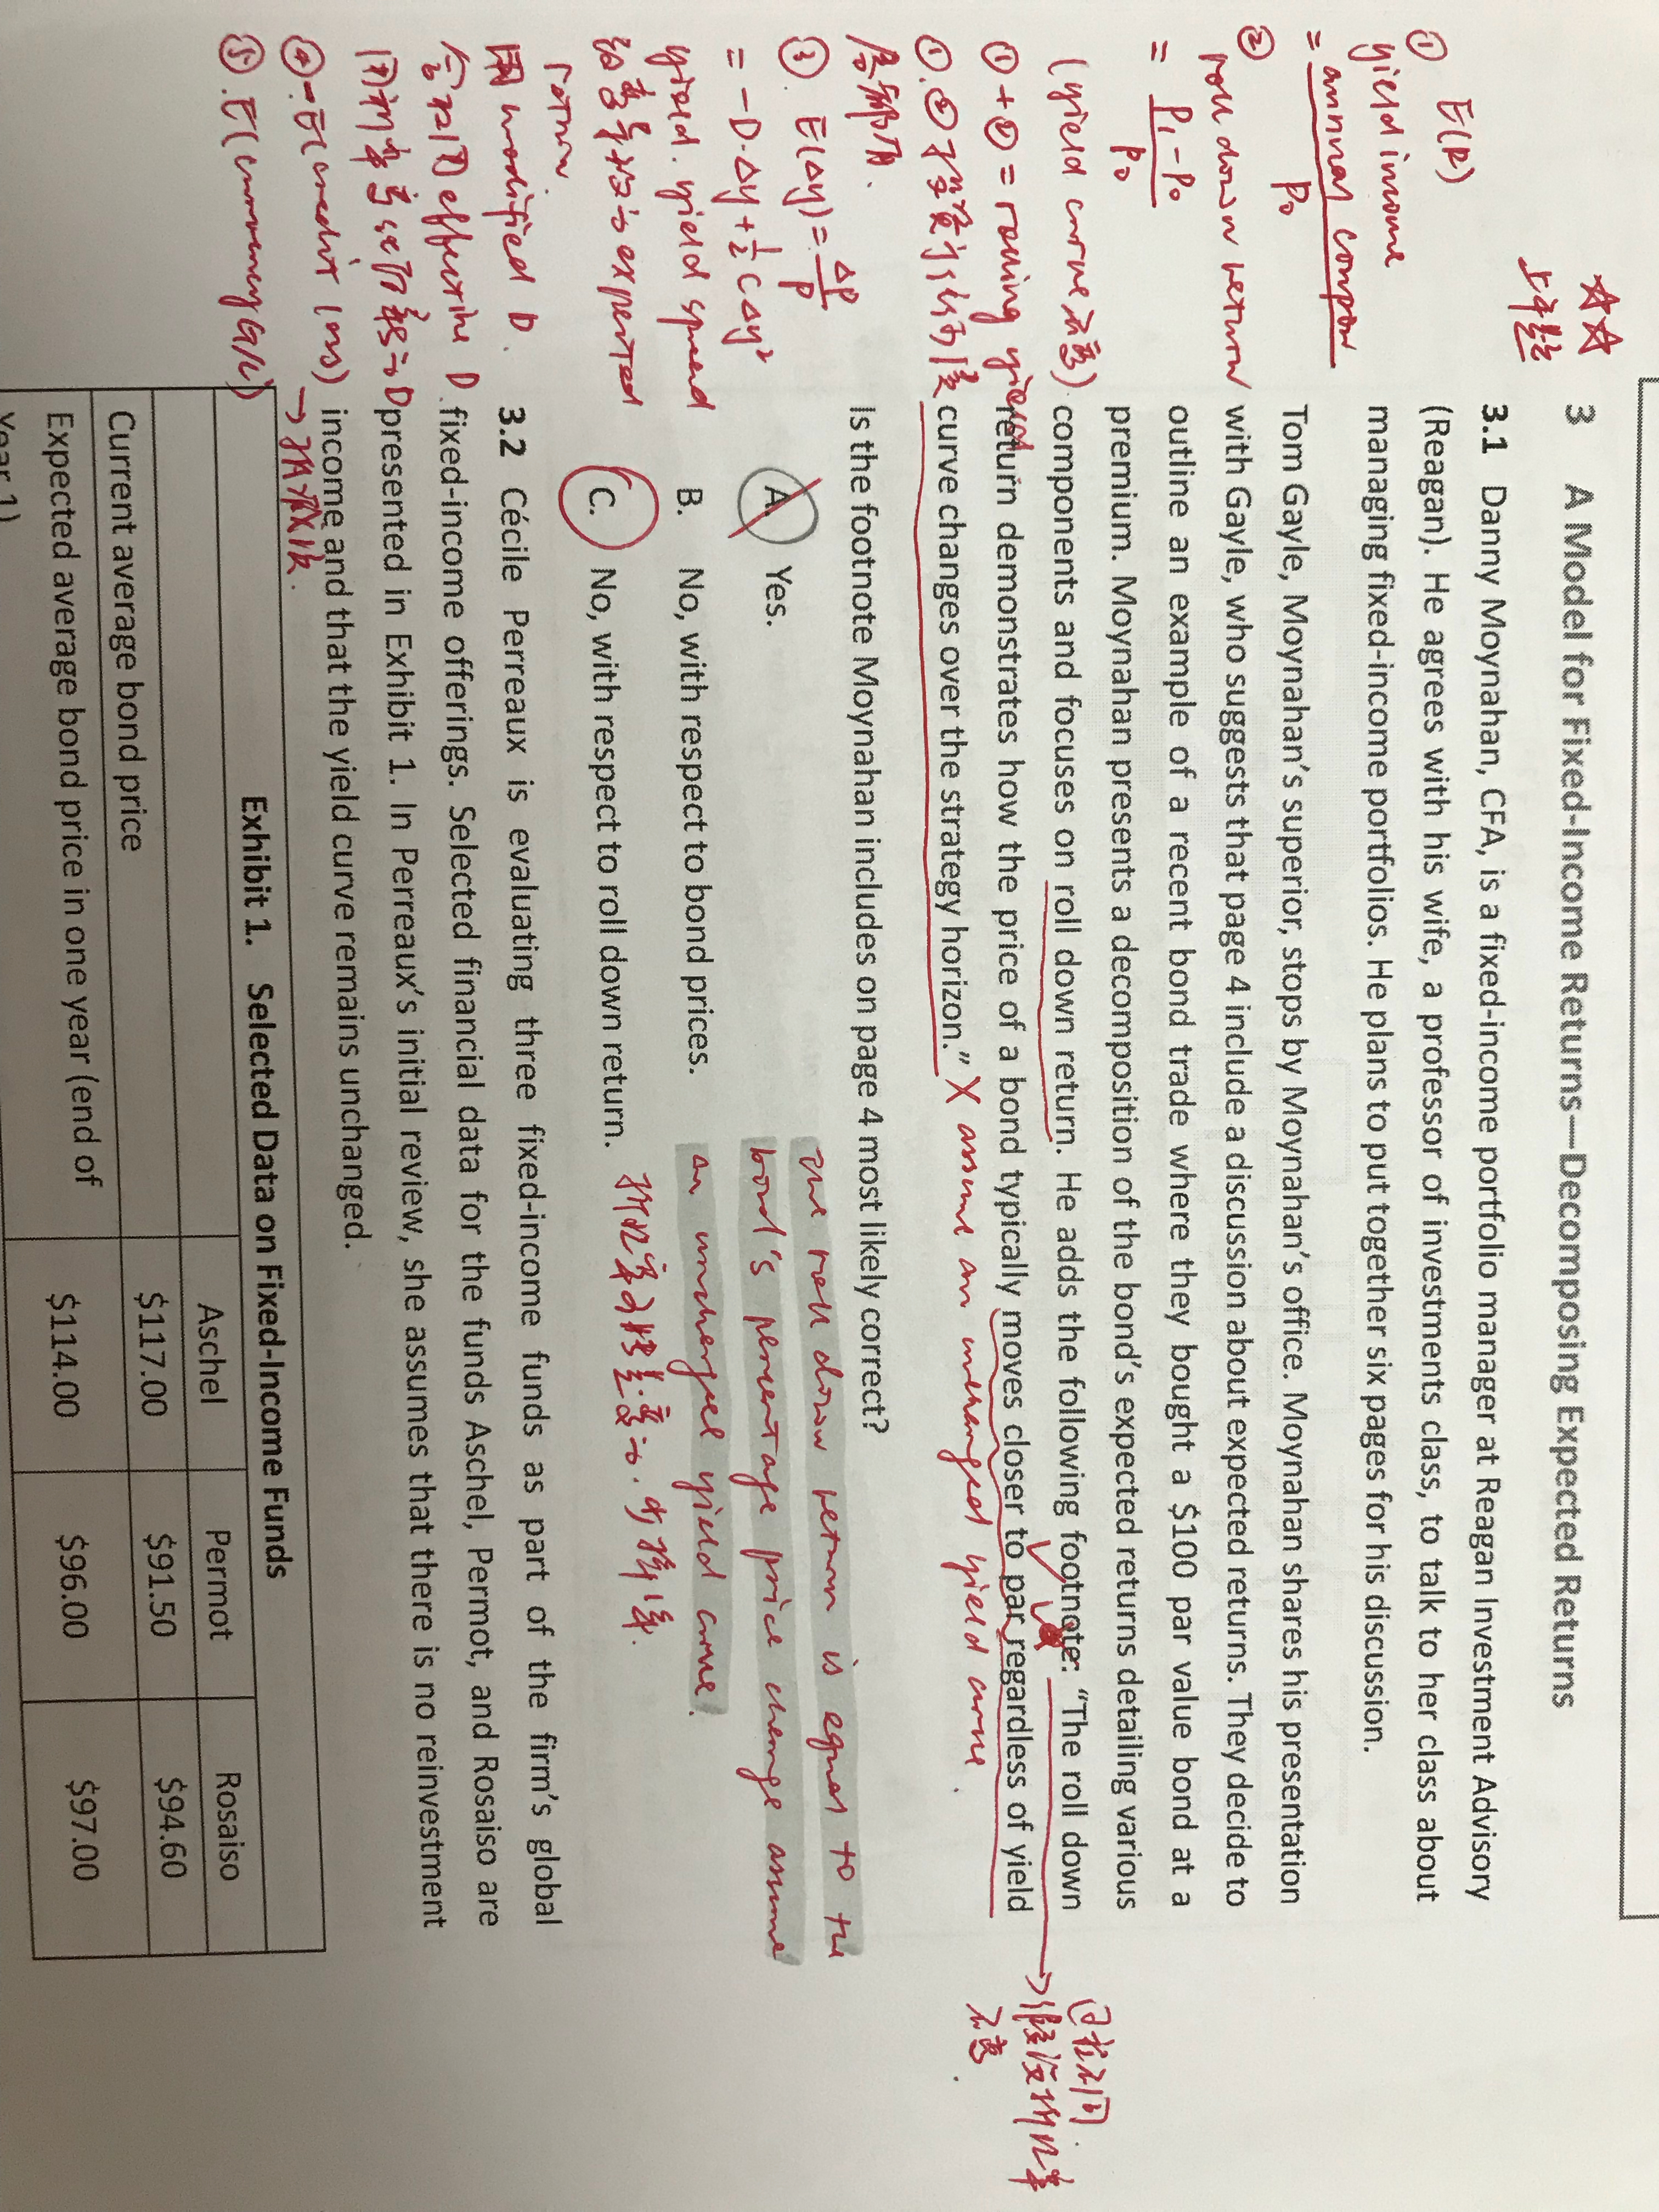 3 A Model for Fixed-Income Returns—Decomposing Expected Returns
3.1 Danny Moynahan, CFA, is a fixed-income portfolio manager at Reagan Investment Advisory
(Reagan). He agrees with his wife, a professor of investments class, to talk to her class about
managing fixed-income portfolios. He plans to put together six pages for his discussion.
Tom Gayle, Moynahan's superior, stops by Moynahan's office. Moynahan shares his presentation
with Gayle, who suggests that page 4 include a discussion about expected returns. They decide to
outline an example of a recent bond trade where they bought a $100 par value bond at a
premium. Moynahan presents a decomposition of the bond's expected returns detailing various
components and focuses on roll down return. He adds the following footnote: "The roll down
return demonstrates how the price of a bond typically moves closer to par regardless of yield
curve changes over the strategy horizon." X assume an unchanged yield curve.
Is the footnote Moynahan includes on page 4 most likely correct?
A. Yes.
B. No, with respect to bond prices.
C. No, with respect to roll down return.
the roll down return is equal to the
bond's percentage price change assume
an unchanged yield curve.
3.2 Cécile Perreaux is evaluating three fixed-income funds as part of the firm's global
fixed-income offerings. Selected financial data for the funds Aschel, Permot, and Rosaiso are
presented in Exhibit 1. In Perreaux's initial review, she assumes that there is no reinvestment
income and that the yield curve remains unchanged.
Exhibit 1. Selected Data on Fixed-Income Funds
Aschel Permot Rosaiso
Current average bond price $117.00 $91.50 $94.60
Expected average bond price in one year (end of $114.00 $96.00 $97.00
Year 1)
① E(R)
yield income
= annual coupon
P₀
② roll down return
= P₁-P₀
P₀
(yield curve 不变)
①+② = rolling yield
③. E(Δy) = ΔP
P
= -D·Δy + ½CΔy²
yield. yield spread
expected
return.
用 modified D.
effective D.
④ -E(credit loss)
⑤. E(currency G/L)